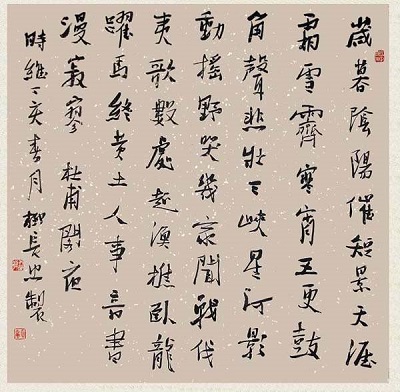 歲暮陰陽催短景天涯
霜雪霽寒宵五更鼓
角聲悲壯三峽星河影
動搖野哭幾家聞戰伐
夷歌數處起漁樵臥龍
躍馬終黄土人事音書
漫寂寥 杜甫閣夜
時維丁亥春月柳長忠製